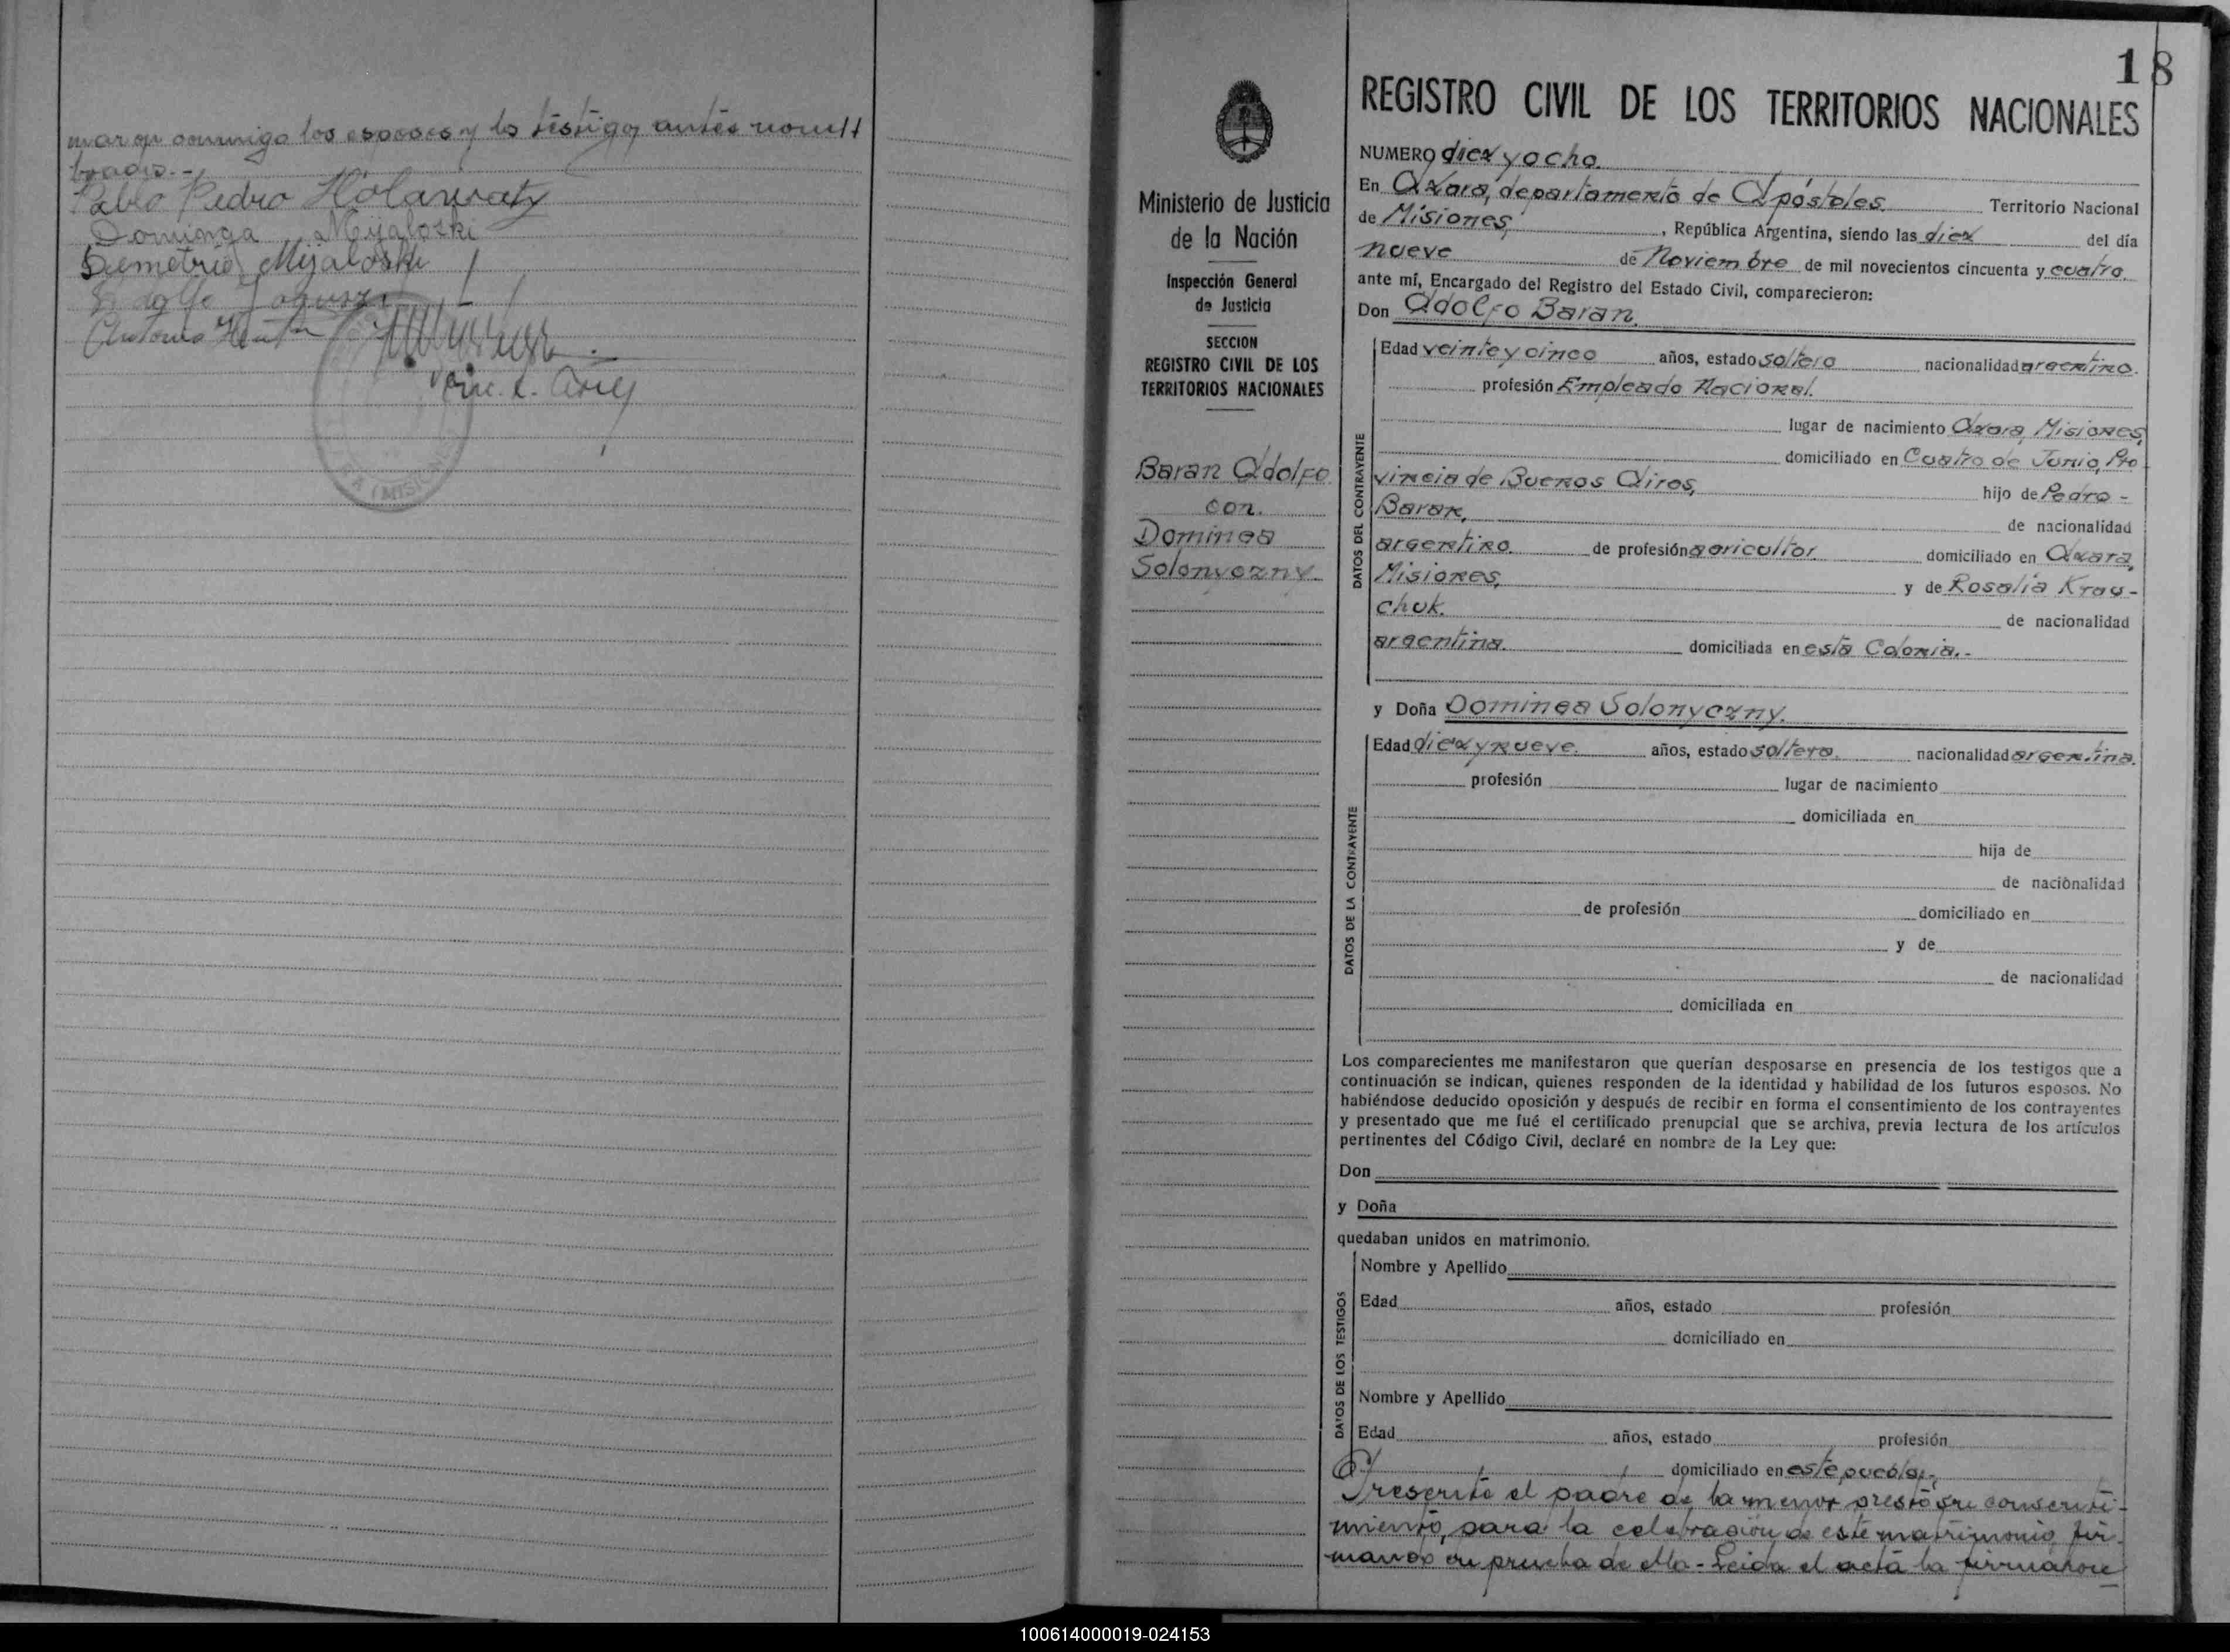 maron conmigo los esposos y los testigos antes nom
brados.-
Pablo Pedro Holawaty
Dominga Mijaloski
Demetrio Mijaloski
Antonio
Enc. R. Civil
18
REGISTRO CIVIL DE LOS TERRITORIOS NACIONALES
Ministerio de Justicia
de la Nación
Inspección General
de Justicia
SECCION
REGISTRO CIVIL DE LOS
TERRITORIOS NACIONALES
Baran Adolfo
con.
Dominga
Solonyczny
NUMERO diez y ocho.
En Azara, departamento de Apóstoles. Territorio Nacional
de Misiones, , República Argentina, siendo las diez del día
nueve de Noviembre de mil novecientos cincuenta y cuatro.
ante mí, Encargado del Registro del Estado Civil, comparecieron:
Don Adolfo Baran.
DATOS DEL CONTRAYENTE
Edad veinte y cinco años, estado soltero nacionalidad argentino.
profesión Empleado Nacional.
lugar de nacimiento Azara, Misiones,
domiciliado en Cuatro de Junio, Pro
vincia de Buenos Aires, hijo de Pedro -
Baran, de nacionalidad
argentino. de profesión agricultor domiciliado en Azara,
Misiones, y de Rosalia Krau-
chuk. de nacionalidad
argentina. domiciliada en esta Colonia.-
y Doña Dominga Solonyczny.
DATOS DE LA CONTRAYENTE
Edad diez y nueve. años, estado soltera. nacionalidad argentina.
profesión lugar de nacimiento
domiciliada en
hija de
de nacionalidad
de profesión domiciliado en
y de
de nacionalidad
domiciliada en
Los comparecientes me manifestaron que querían desposarse en presencia de los testigos que a
continuación se indican, quienes responden de la identidad y habilidad de los futuros esposos. No
habiéndose deducido oposición y después de recibir en forma el consentimiento de los contrayentes
y presentado que me fué el certificado prenupcial que se archiva, previa lectura de los artículos
pertinentes del Código Civil, declaré en nombre de la Ley que:
Don
y Doña
quedaban unidos en matrimonio.
DATOS DE LOS TESTIGOS
Nombre y Apellido
Edad años, estado profesión
domiciliado en
Nombre y Apellido
Edad años, estado profesión
domiciliado en este pueblo.-
Presente el padre de la menor prestó su consenti-
miento, para la celebración de este matrimonio, fir
mando en prueba de ello - Leida el acta la firmaron
100614000019-024153